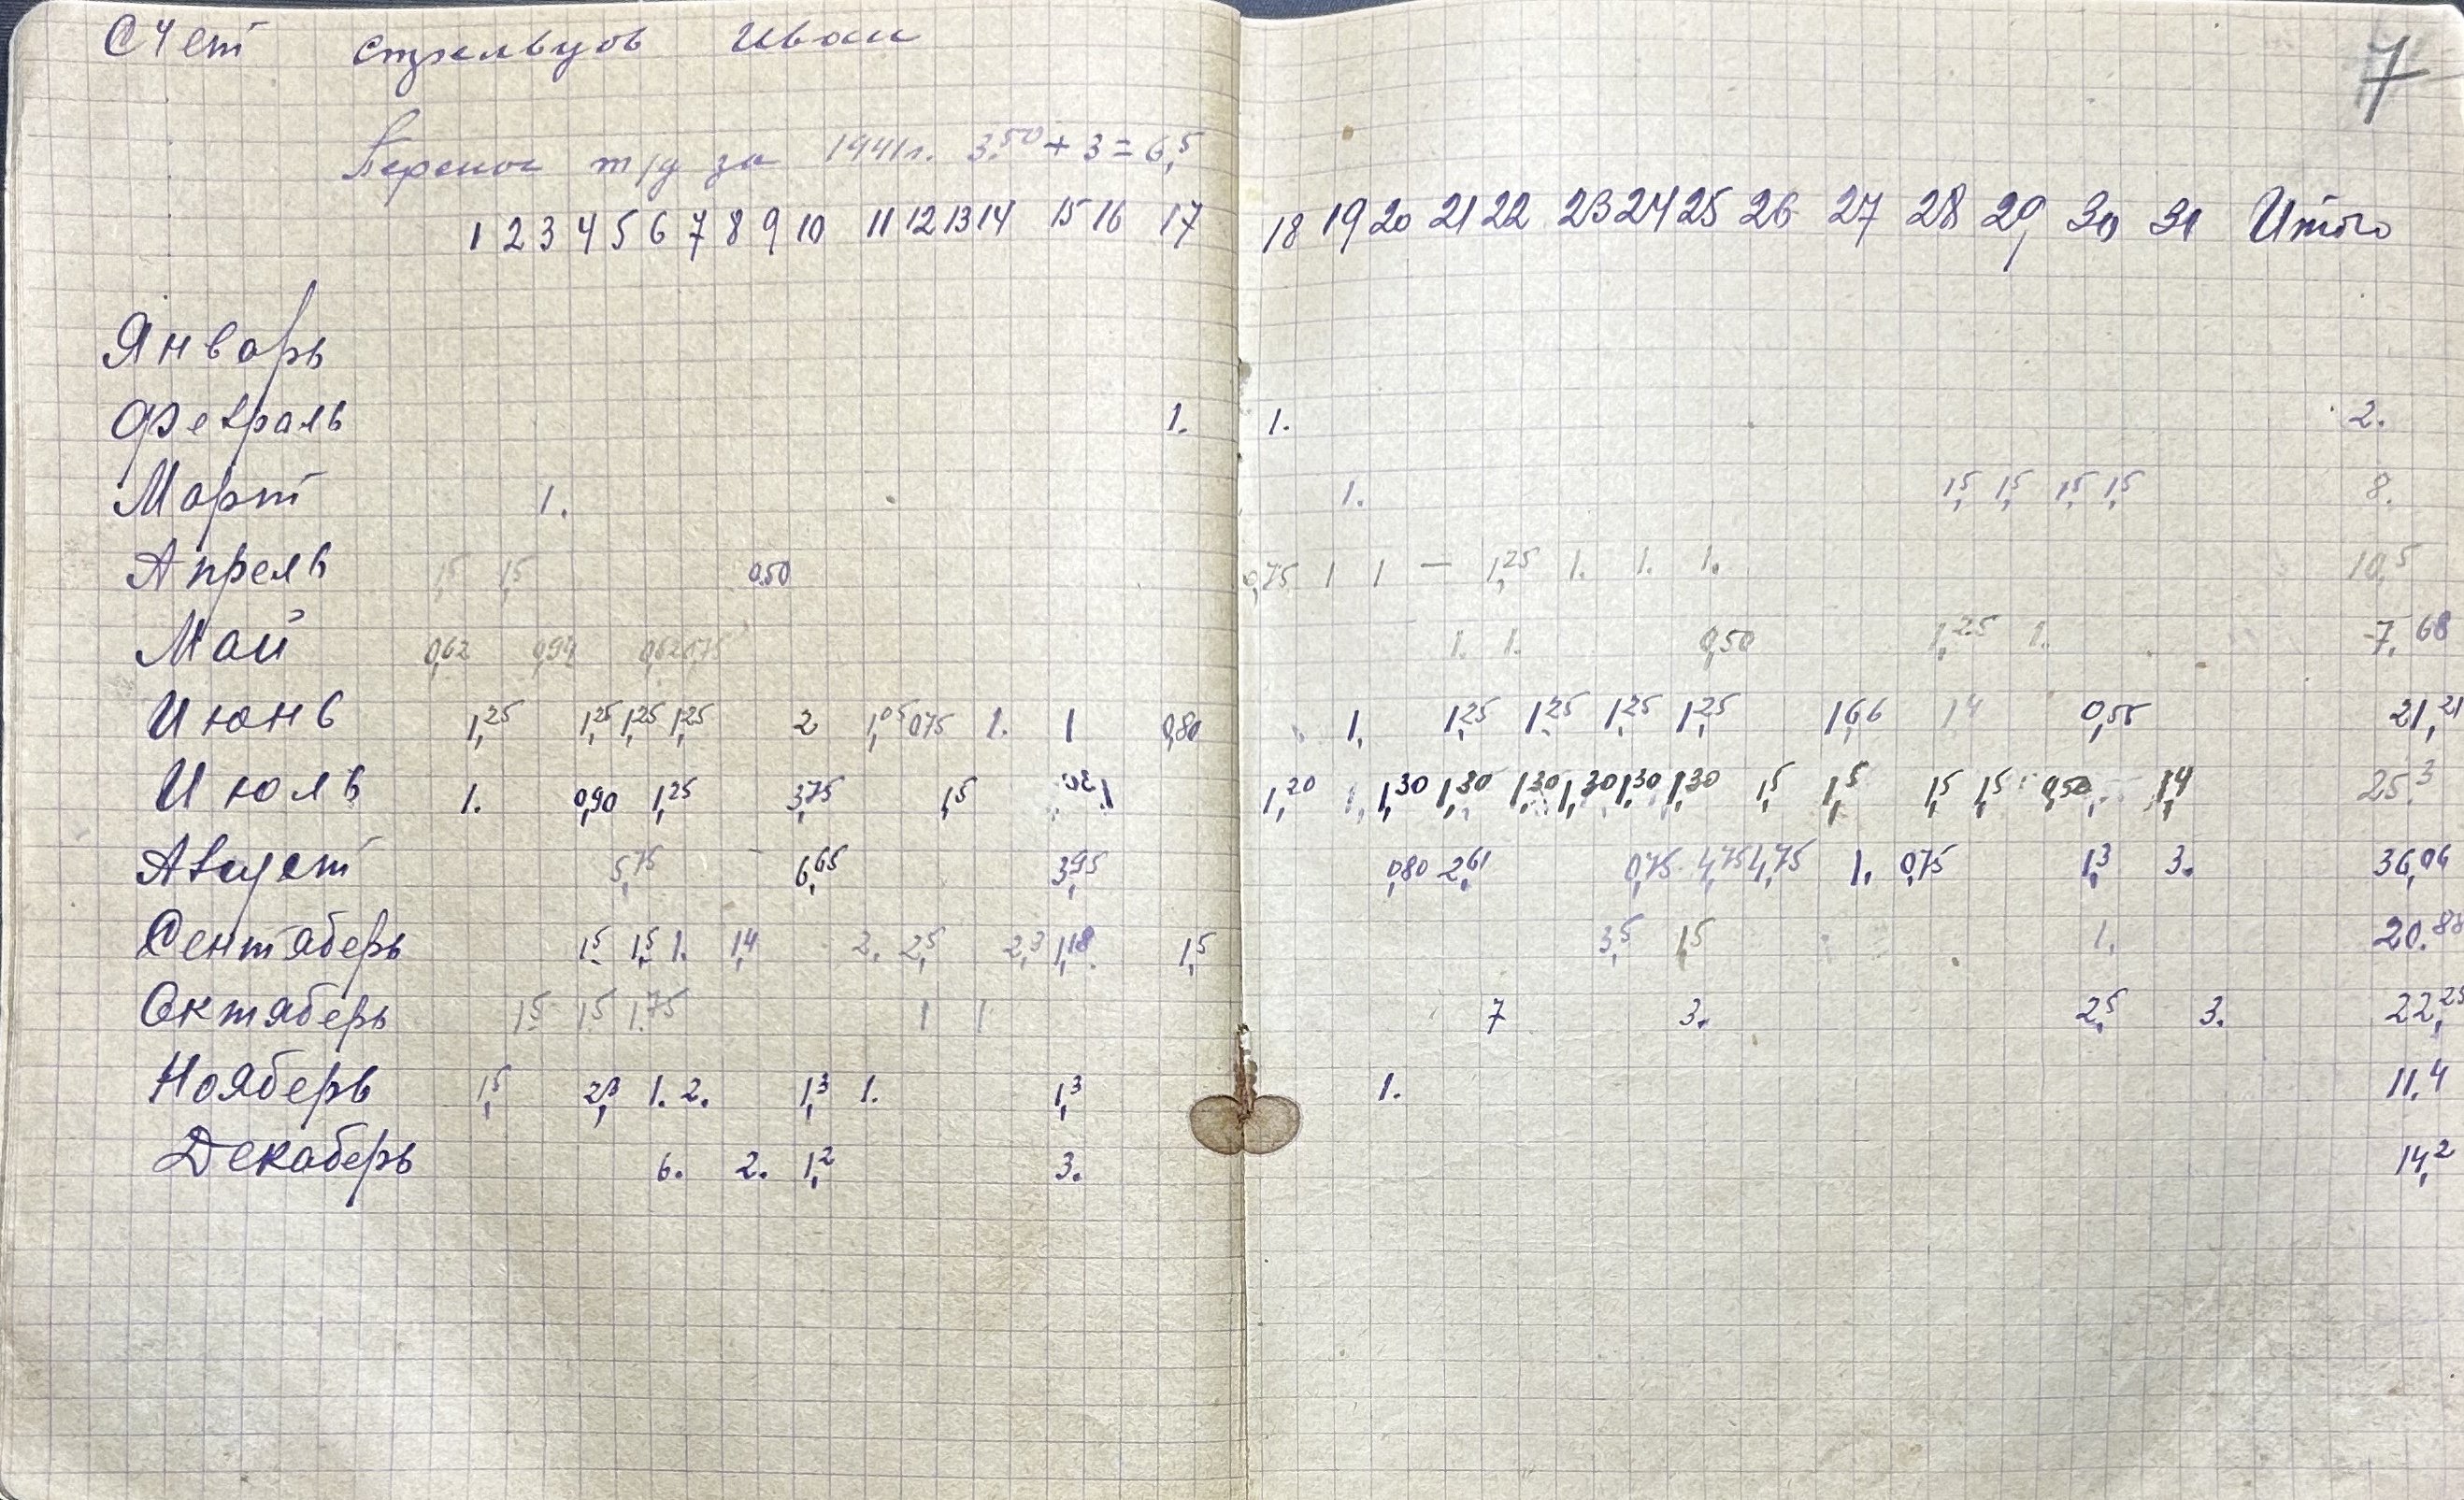 Счет Стрельцов Иван
7
Перенос т/д за 1941г. 3.50 + 3 = 6,5
1 2 3 4 5 6 7 8 9 10 11 12 13 14 15 16 17 18 19 20 21 22 23 24 25 26 27 28 29 30 31 Итого
Январь
Февраль 1. 1. 2.
Март 1. 1. 1,5 1,5 1,5 1,5 8.
Апрель 1,5 1,5 0.50 0,75 1 1 — 1,25 1. 1. 1. 10,5
Май 0,62 0,94 0,62 1,75 1. 1. 0,50 1,25 1. 7,68
Июнь 1,25 1,25 1,25 1,25 2 1,05 075 1. 1 0,80 1. 1,25 1,25 1,25 1,25 1,66 1,4 0,55 21,21
Июль 1. 0,90 1,25 3,75 1,5 1,30 1, 1,30 1,30 1,30 1,30 1,30 1,30 1,5 1,5 1,5 1,5 0,50 1,4 25.3
Август 5,75 6,65 3,95 0,80 2,61 0,75 4,75 4,75 1. 0,75 1,3 3. 36,06
Сентяберь 1,5 1,5 1. 1,4 2. 2,5 2,3 1,18 1,5 3,5 1,5 1. 20.88
Октяберь 1,5 1,5 1.75 1 1 7 3. 2,5 3. 22,25
Нояберь 1,5 2,3 1. 2. 1,3 1. 1,3 1. 11.4
Декаберь 6. 2. 1,2 3. 14,2